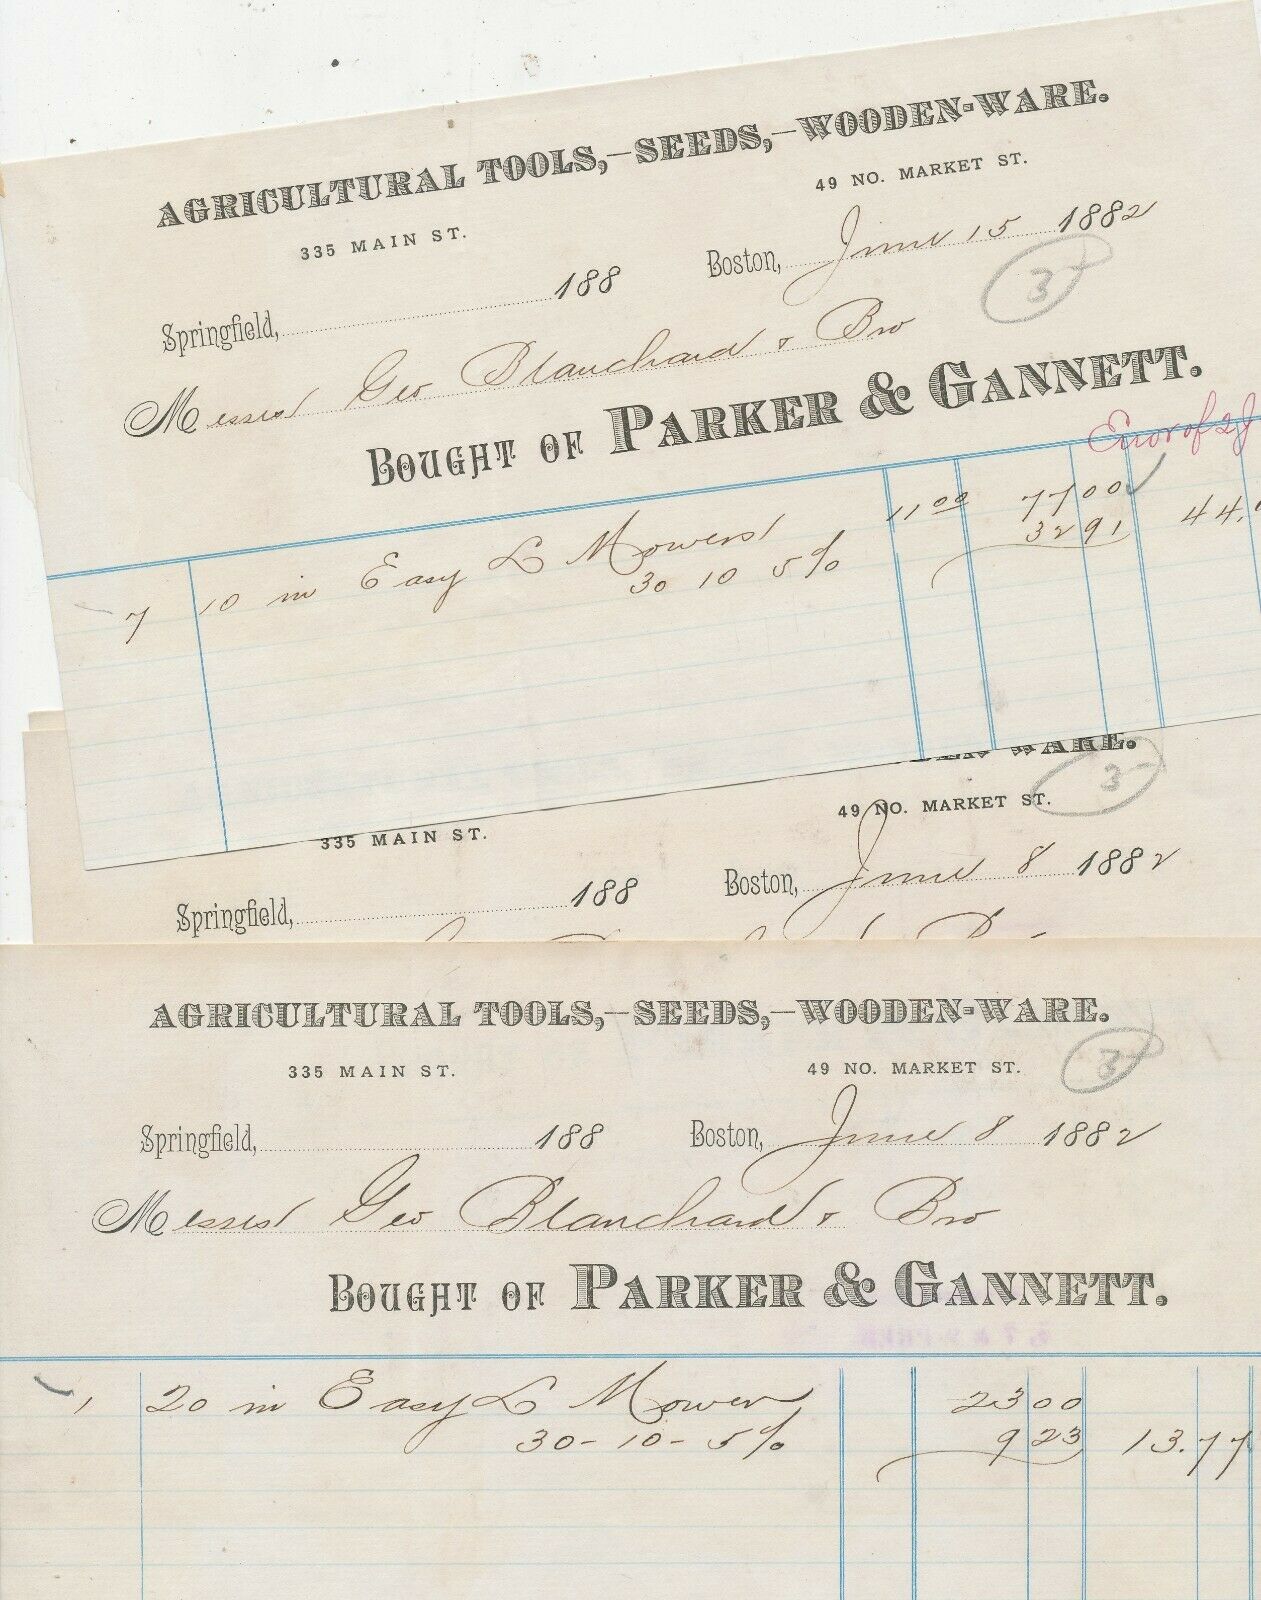 AGRICULTURAL TOOLS,—SEEDS,—WOODEN-WARE.
335 MAIN ST. 49 NO. MARKET ST.
Springfield, 188 Boston, June 15 1882
3
Messrs Geo Blanchard & Bro
BOUGHT OF PARKER & GANNETT.
Error of
7 10 in Easy L Mowers 11 00 77 00
30 10 5% 32 91 44.
WARE.
3
335 MAIN ST. 49 NO. MARKET ST.
Springfield, 188 Boston, June 8 1882
AGRICULTURAL TOOLS,—SEEDS,—WOODEN-WARE.
335 MAIN ST. 49 NO. MARKET ST. 3
Springfield, 188 Boston, June 8 1882
Messrs Geo Blanchard & Bro
BOUGHT OF PARKER & GANNETT.
1 20 in Easy L Mower 23 00
30-10-5% 9 23 13.77